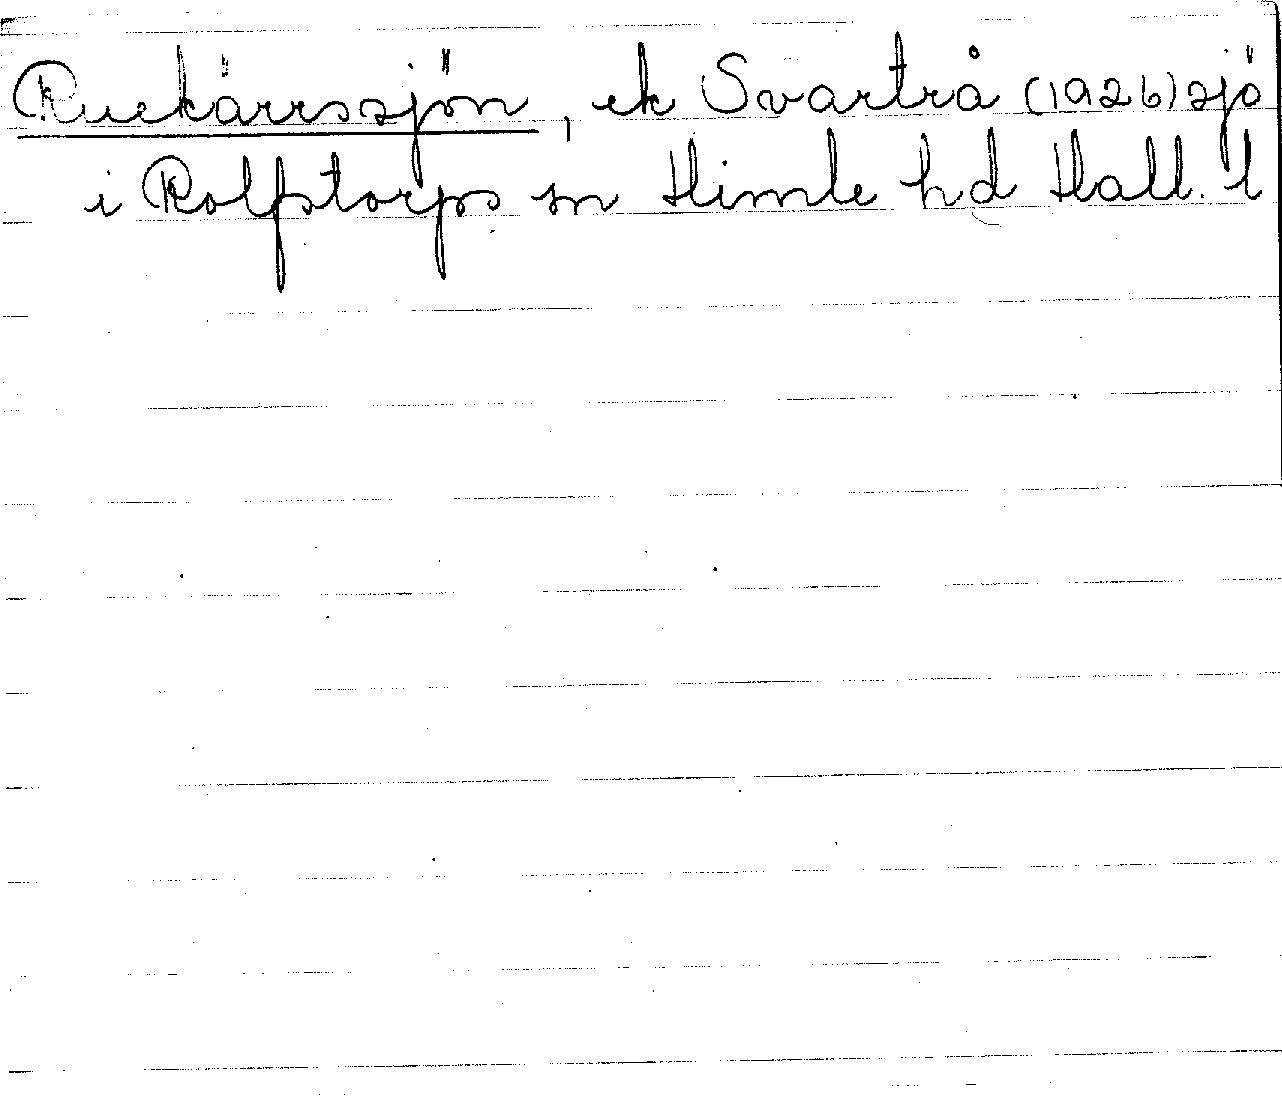 Ruekärrssjön, ek Svartrå (1926) sjö
i Rolfstorps sn Himle hd Hall. l